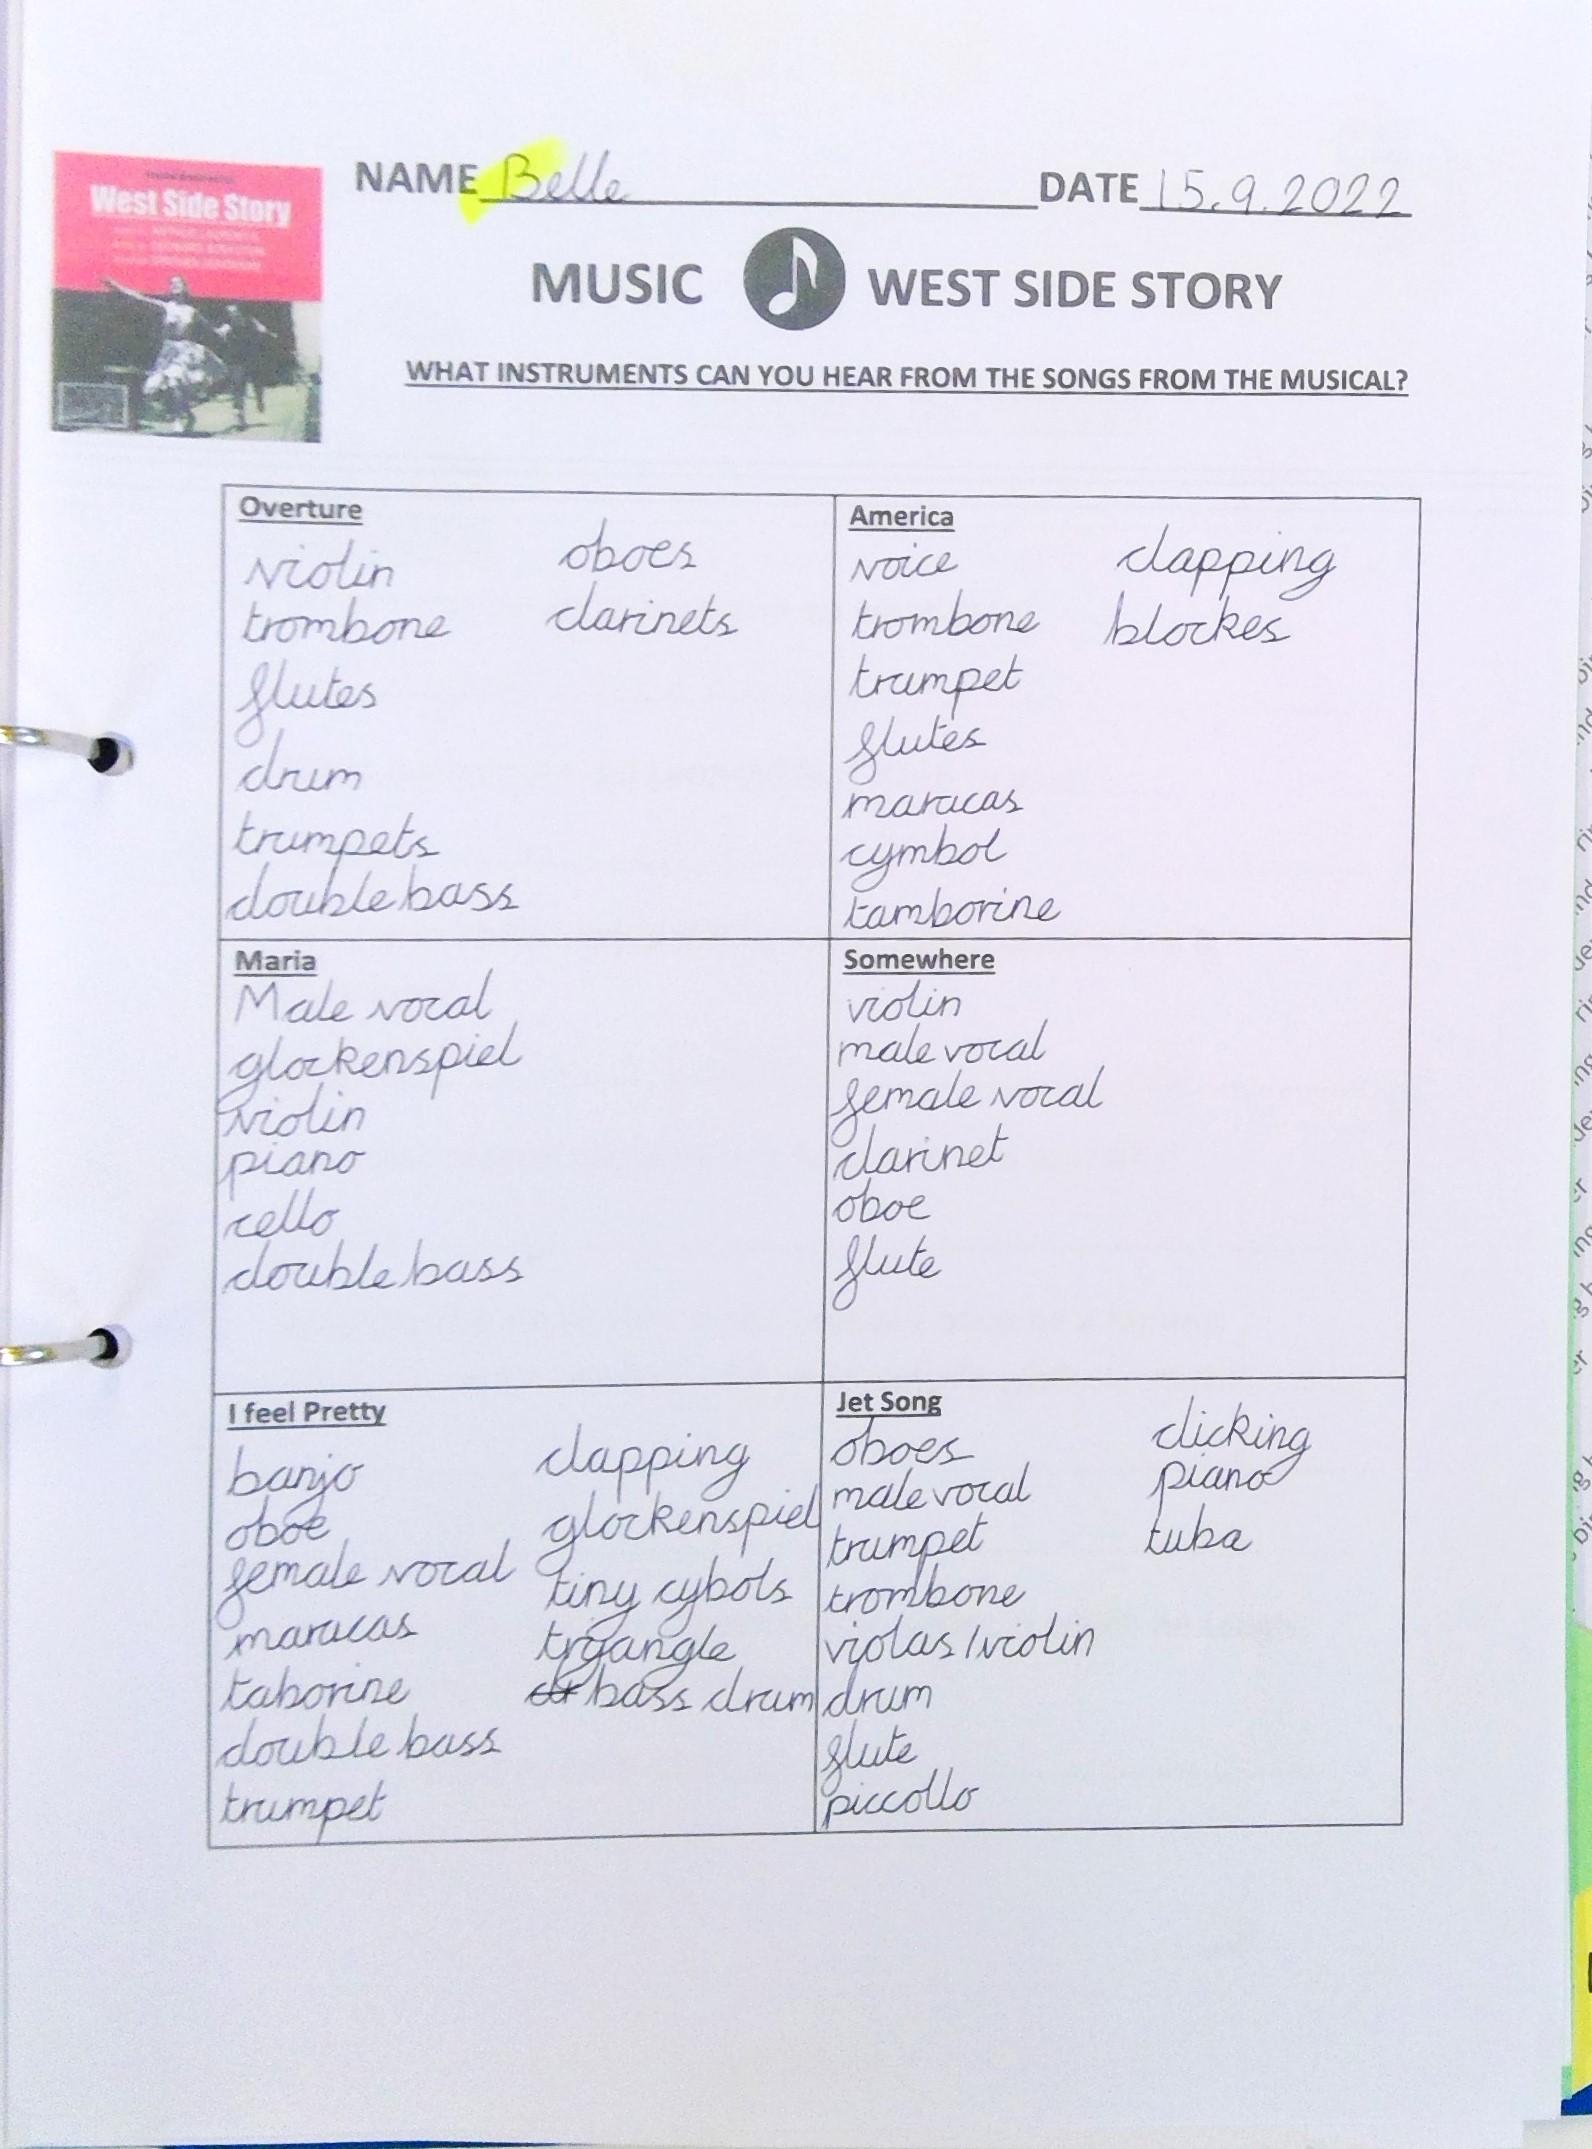 West Side Story
NAME Belle DATE 15.9.2022
MUSIC WEST SIDE STORY
WHAT INSTRUMENTS CAN YOU HEAR FROM THE SONGS FROM THE MUSICAL?
Overture
violin
trombone
flutes
drum
trumpets
double bass
oboes
clarinets
America
voice
trombone
trumpet
flutes
maracas
cymbol
tamborine
clapping
blockes
Maria
Male vocal
glockenspiel
violin
piano
cello
double bass
Somewhere
violin
male vocal
female vocal
clarinet
oboe
flute
I feel Pretty
banjo
oboe
female vocal
maracas
taborine
double bass
trumpet
clapping
glockenspiel
tiny cybols
bass drum
Jet Song
oboes
male vocal
trumpet
trombone
violas/violin
drum
flute
piccollo
clicking
piano
tuba